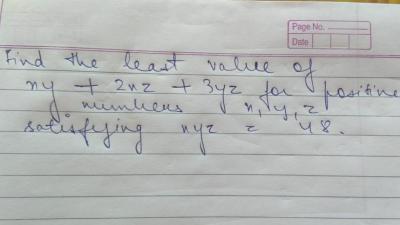 Page No.
Date
Find the least value of
xy + 2xz + 3yz for positive
numbers x, y, z
satisfying xyz = 48.